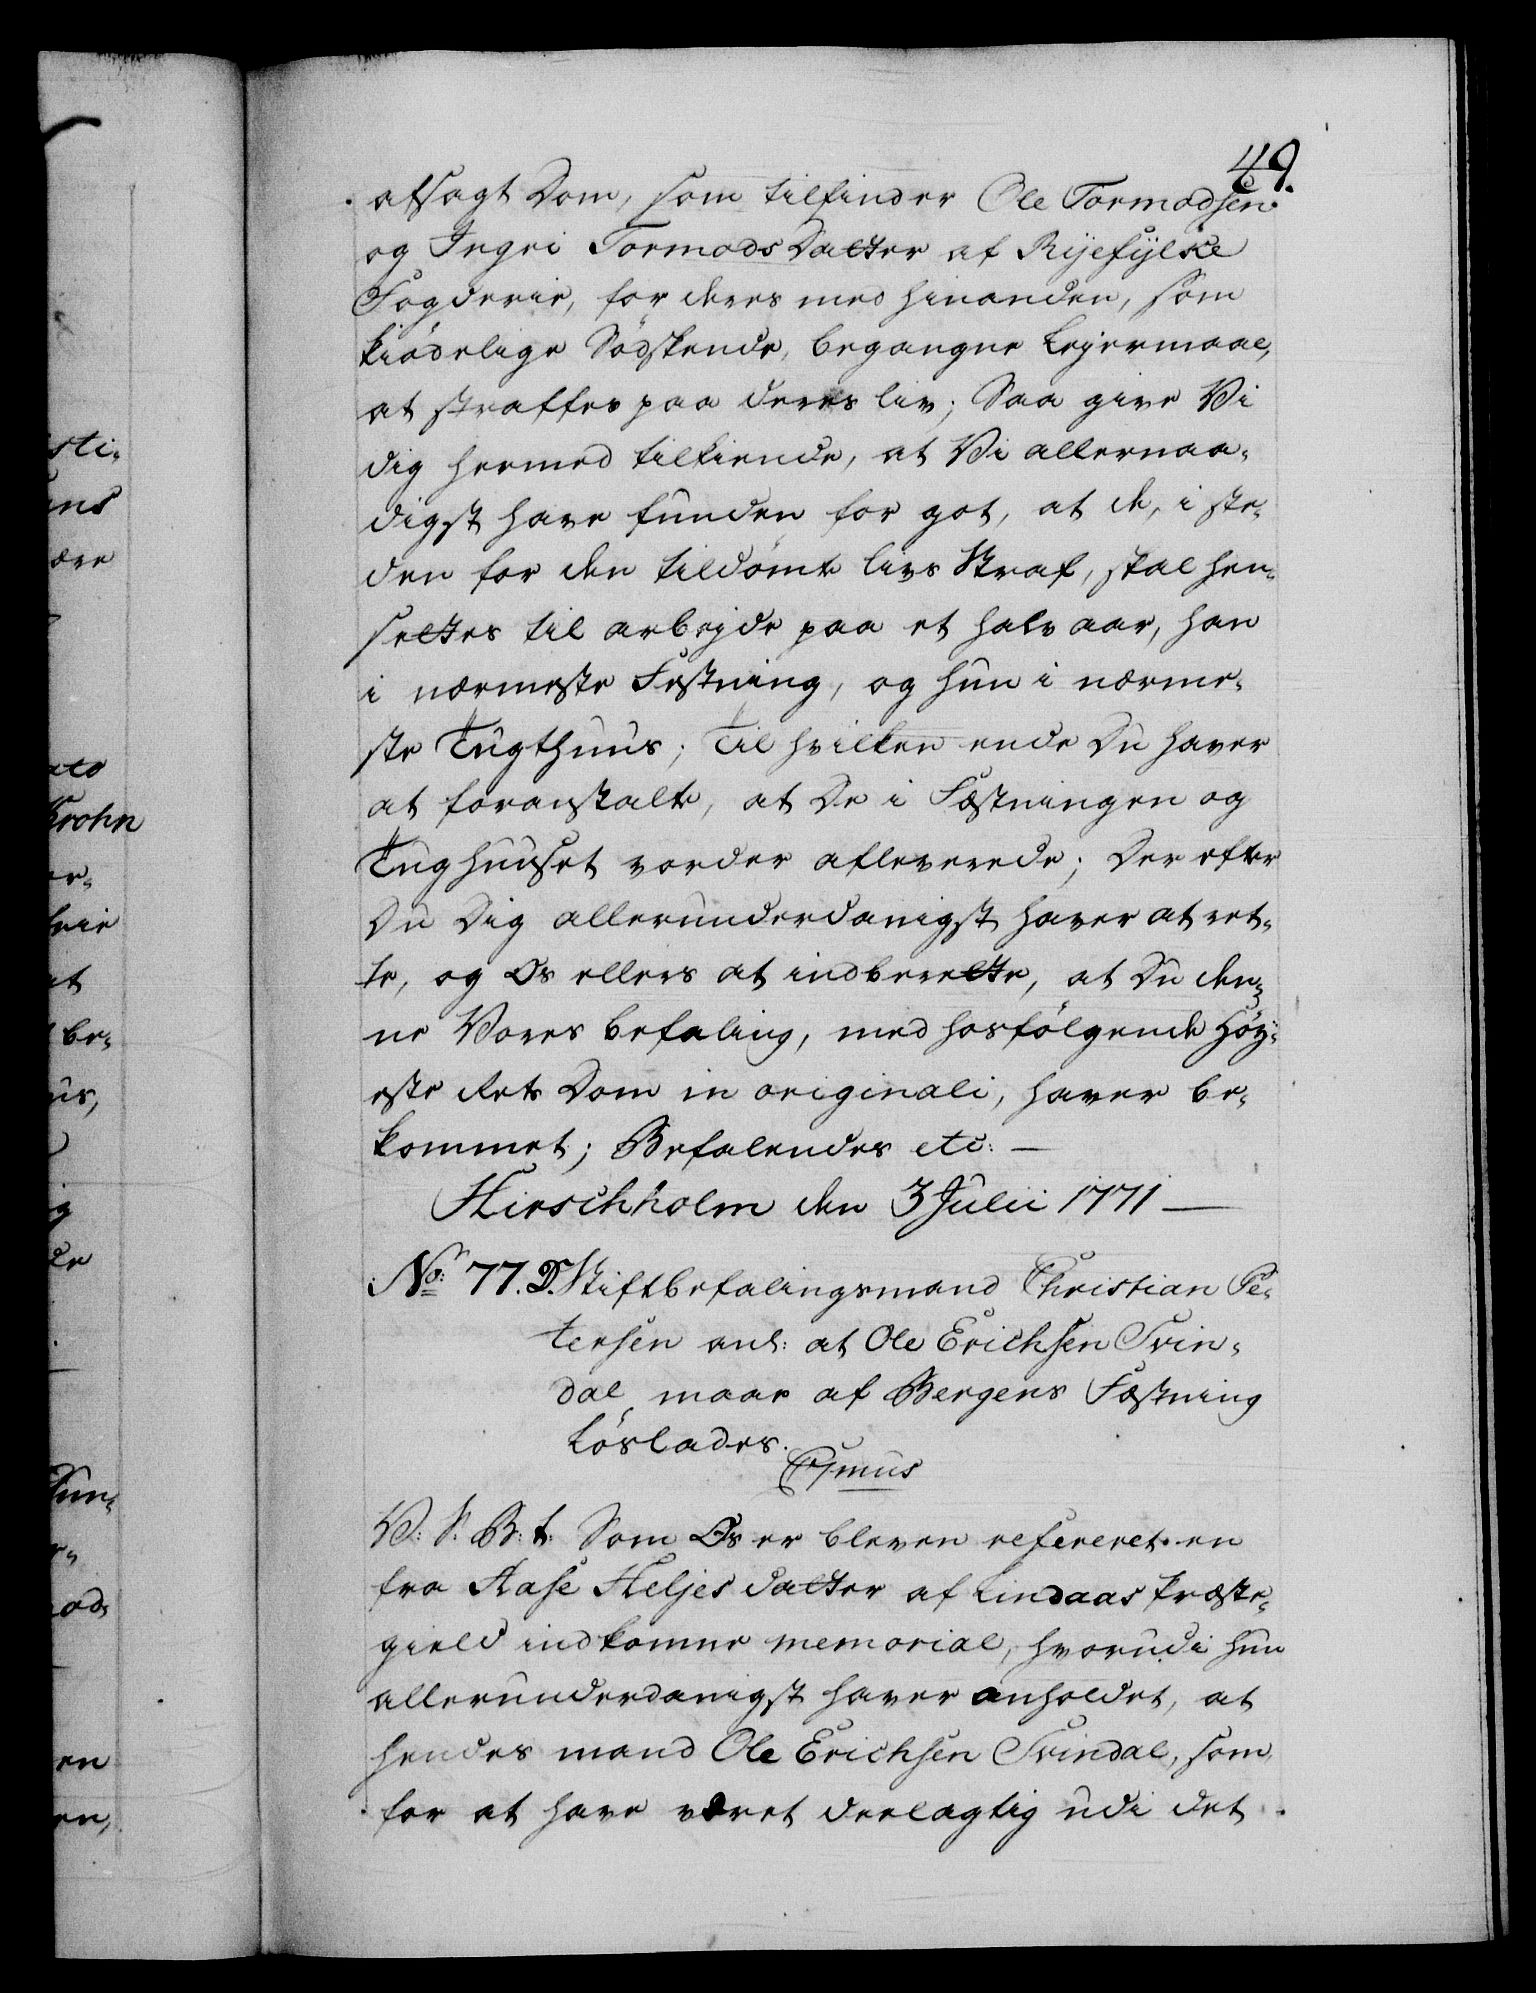 49.
afsagt Dom, som tilfinder Ole Tormodsen
og Ingri Tormods Datter af Ryefylke
Fogderie, for deres med hinanden, som
kiödelige Södskende, begangne Leyermaal,
at straffes paa deres liv; Saa give Vi
dig hermed tilkiende, at Vi allernaa-
digst have funden for got, at de, i ste-
den for den tildömte livs Straf, skal hen-
settes til arbejde paa et halv aar, han
i nærmeste Festning, og hun i nærme-
ste Tugthuus; Til hvilken ende Du haver
at foranstalte, at De i Fæstningen og
Tughuuset vorder afleverede; Der efter
Du Dig allerunderdanigst haver at ret-
te, og Os ellers at indberette, at Du den-
ne Vores befaling, med hosfölgende Höy-
este Rets Dom in originali, haver be-
kommet; Befalendes etc: —
Hirschholm den 3 Julii 1771 —
No: 77. D. Stiftbefalingsmand Christian Pe-
tersen anl: at Ole Erichsen Svin-
dal maae af Bergens Fæstning
löslades.
V: S: B: t: Som Os er bleven refereret en
fra Aase Heljes datter af Lindaas Præste-
gield indkomne memorial, hvorudi hun
allerunderdanigst haver anholdet, at
hendes mand Ole Erichsen Svindal, som
for at have været deelagtig udi det
isti-
ans
ære
ato
Krohn
er-
at
be-
us,
ig
de
er-
en
en,